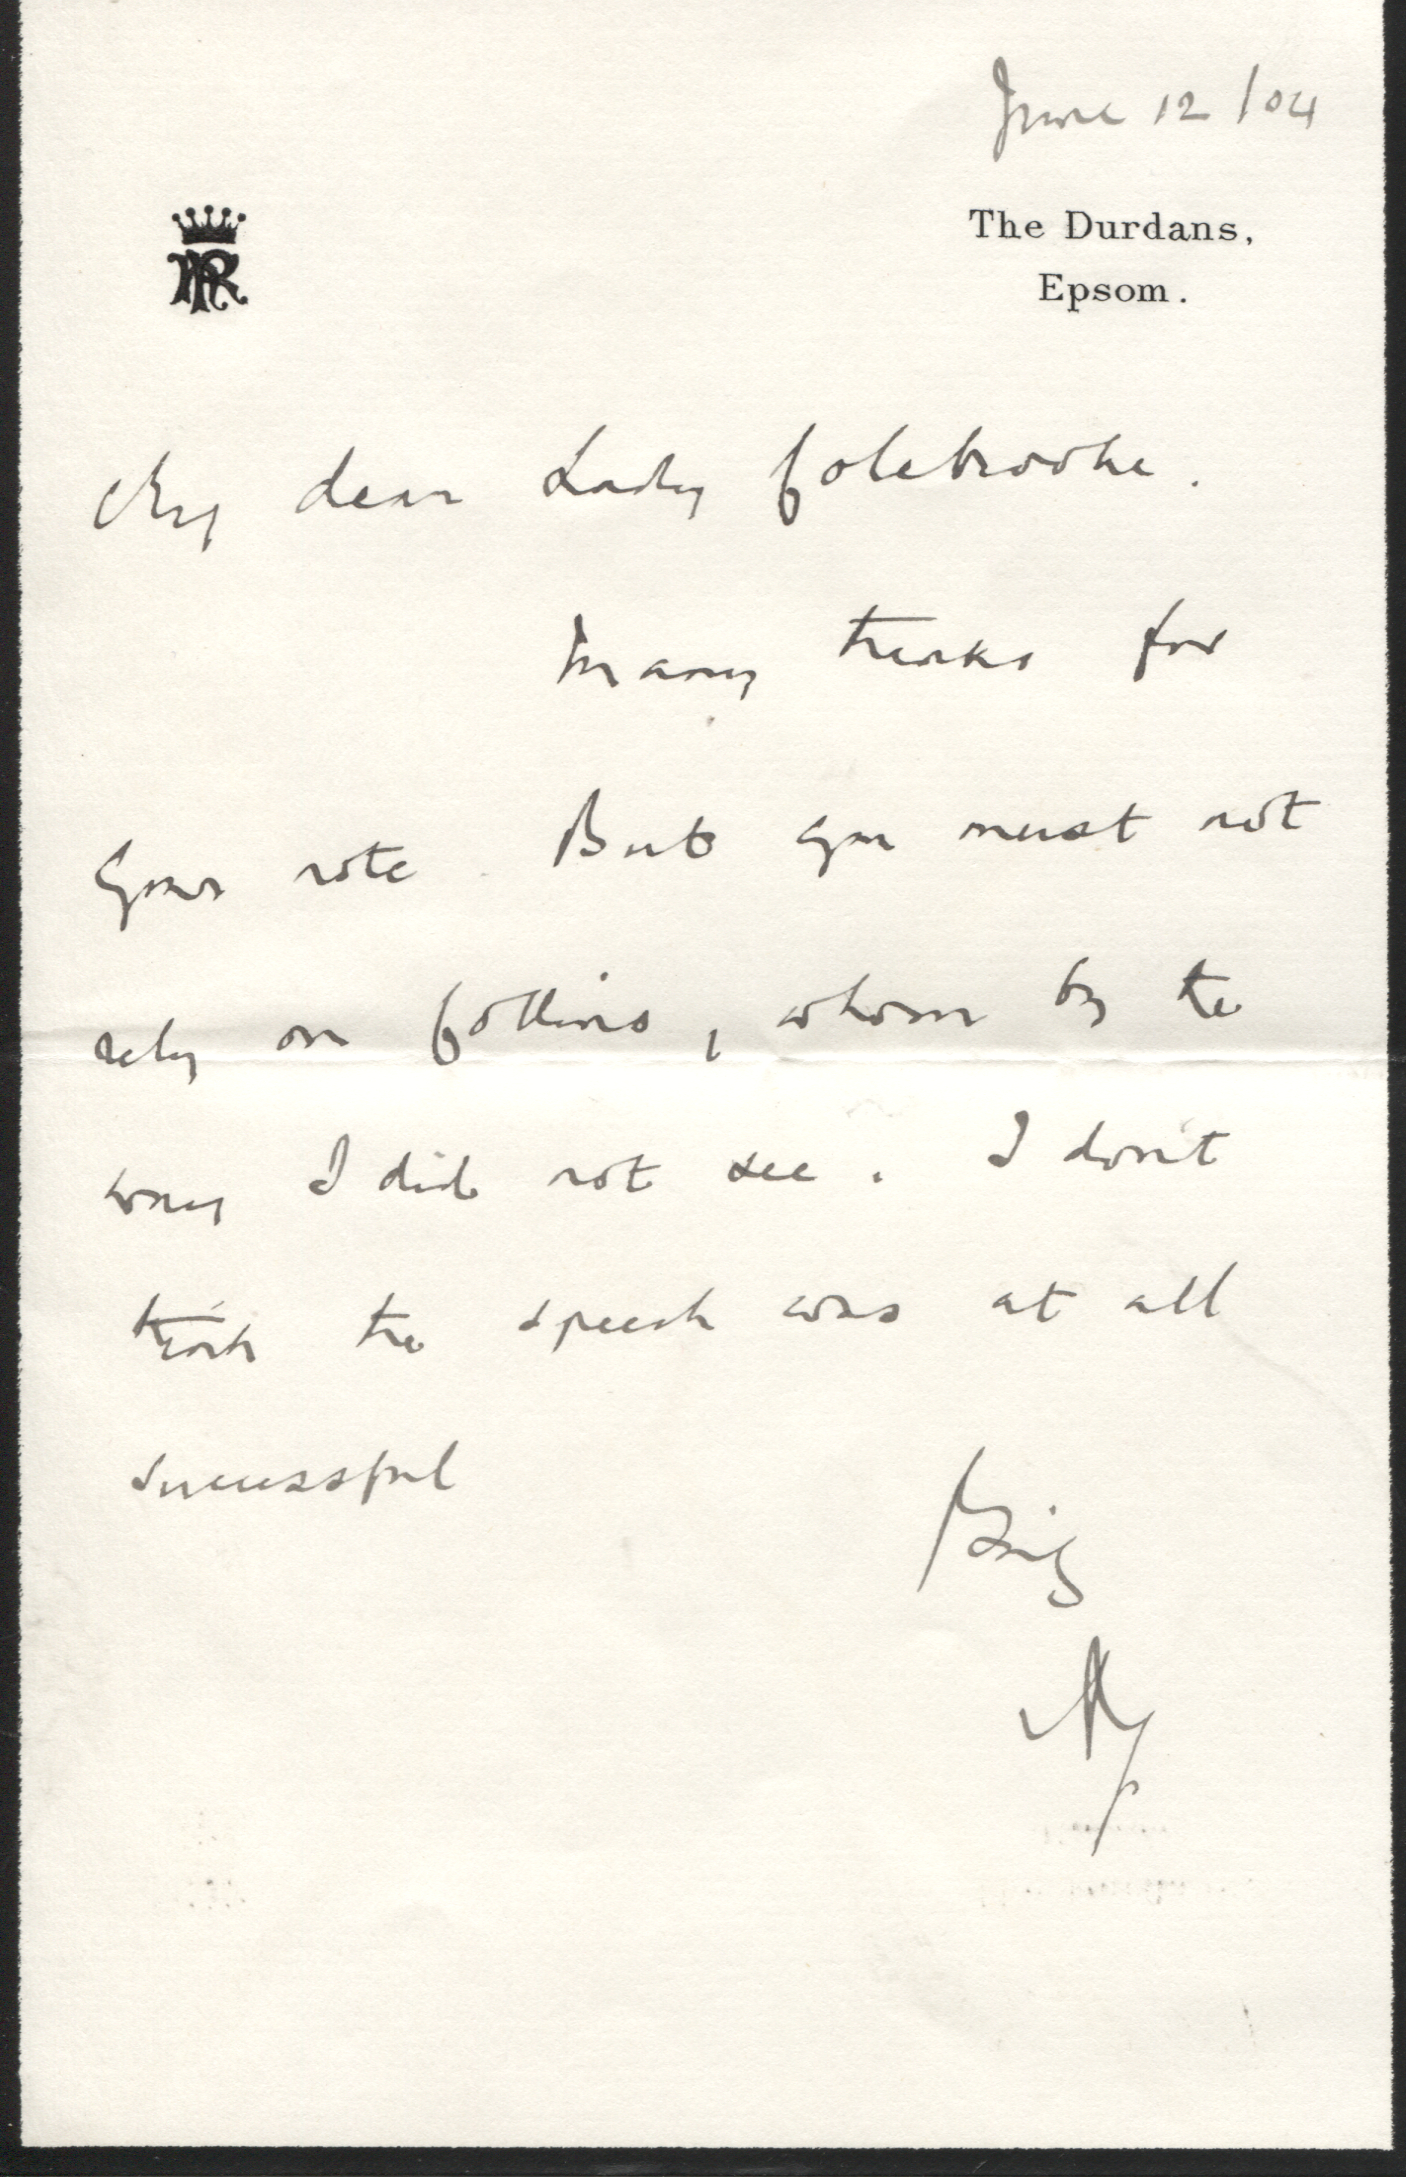 June 12/04
The Durdans,
Epsom.
My dear Lady Colebrooke.
Many thanks for
your note. But you must not
rely on Collins, whom by the
way I did not see. I don't
think the speech was at all
successful
AR